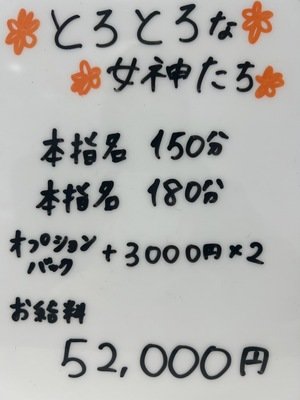 とろとろな
女神たち
本指名 150分
本指名 180分
オプション
バック +3000円×2
お給料
52,000円